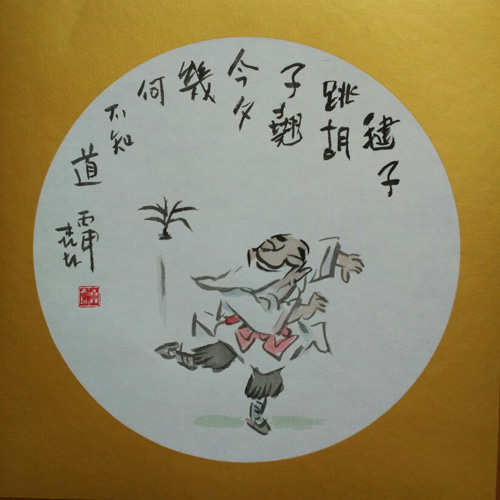 毽子
跳胡
子翹
今夕
幾
何
不知
道
丙申